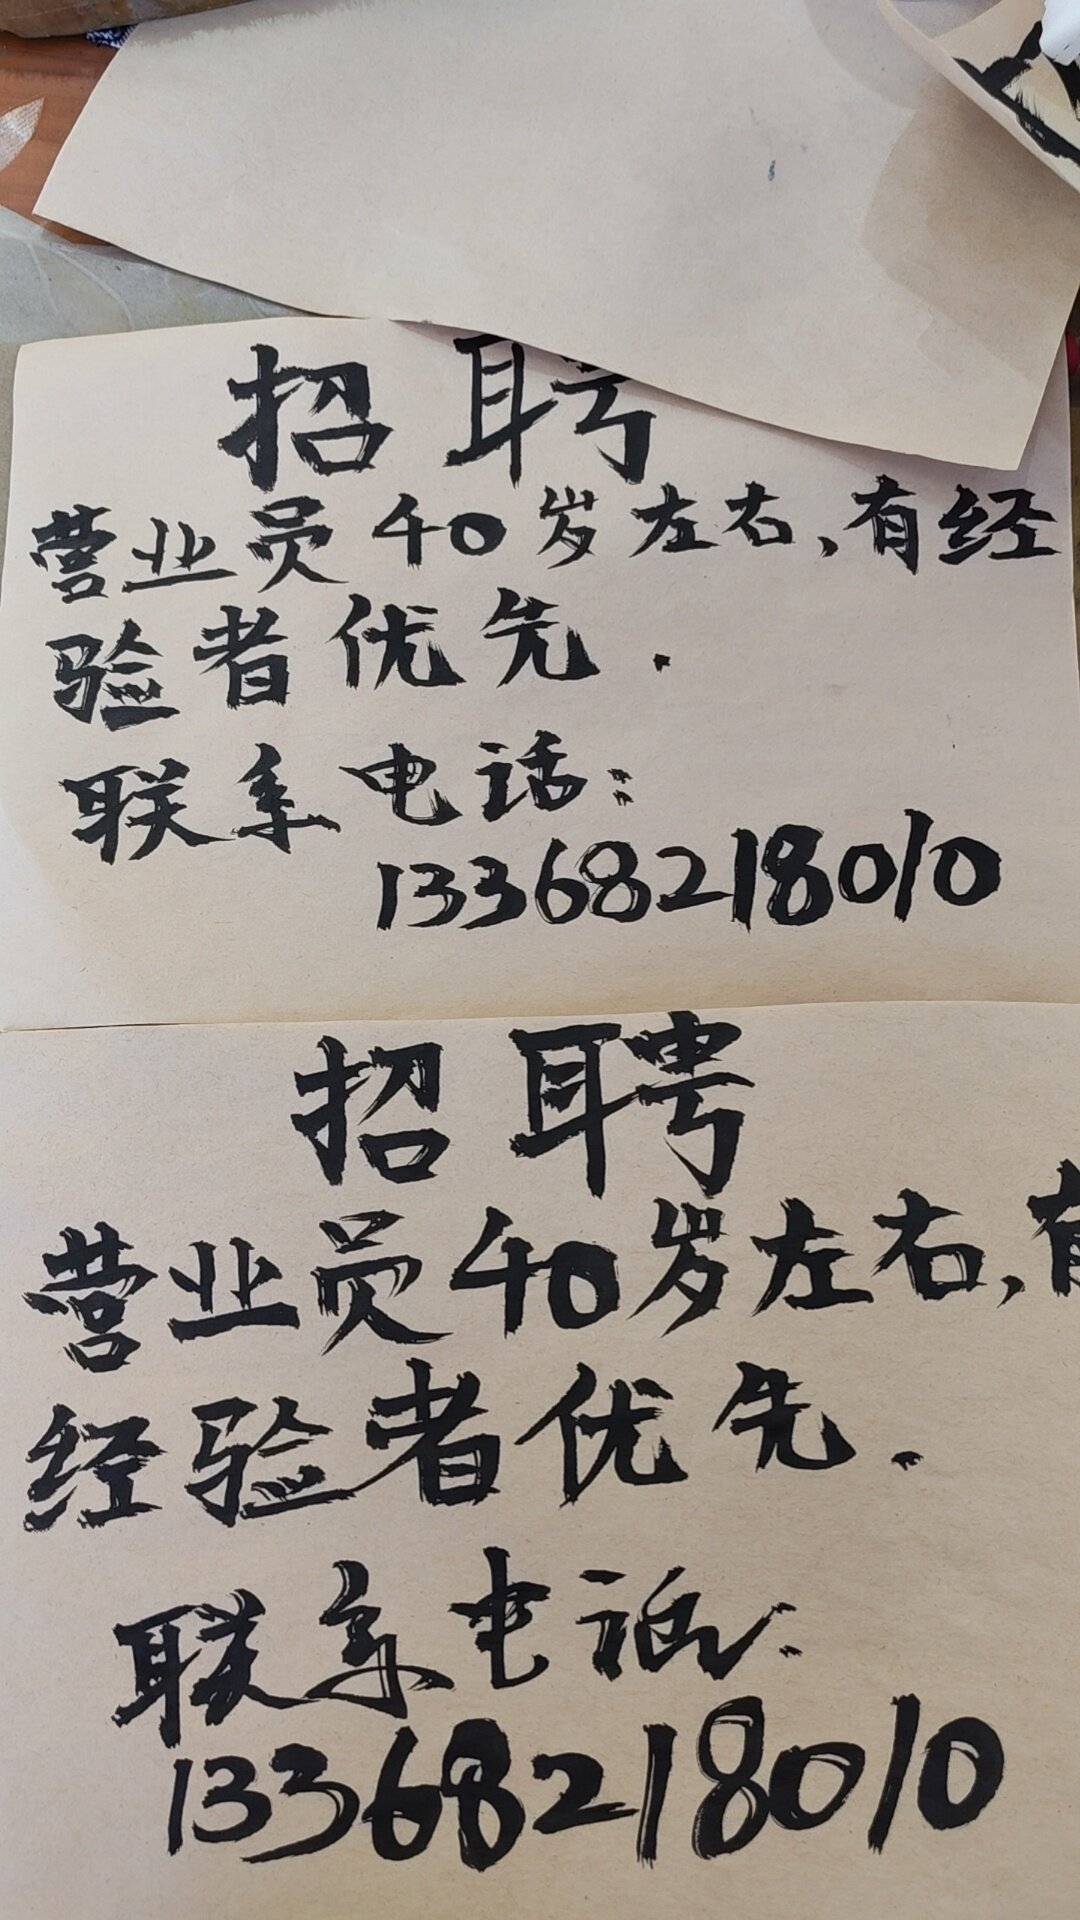 招聘
营业员40岁左右,有经
验者优先.
联系电话:
13368218010
招聘
营业员40岁左右,有
经验者优先.
联系电话:
13368218010